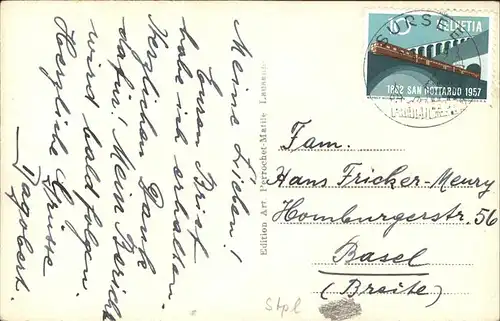 Meine Lieben!
Euren Brief
habe ich erhalten.
Herzlichen Dank
dafür! Mein Bericht
wird bald folgen.
Herzliche Grüsse
Dagobert.
Edition Art. Perrochet-Matile Lausanne
SURSEE
HELVETIA
1882 SAN GOTTARDO 1957
Fam.
Hans Fricker-Meury
Homburgerstr. 56
Basel
(Breite)
Stpl